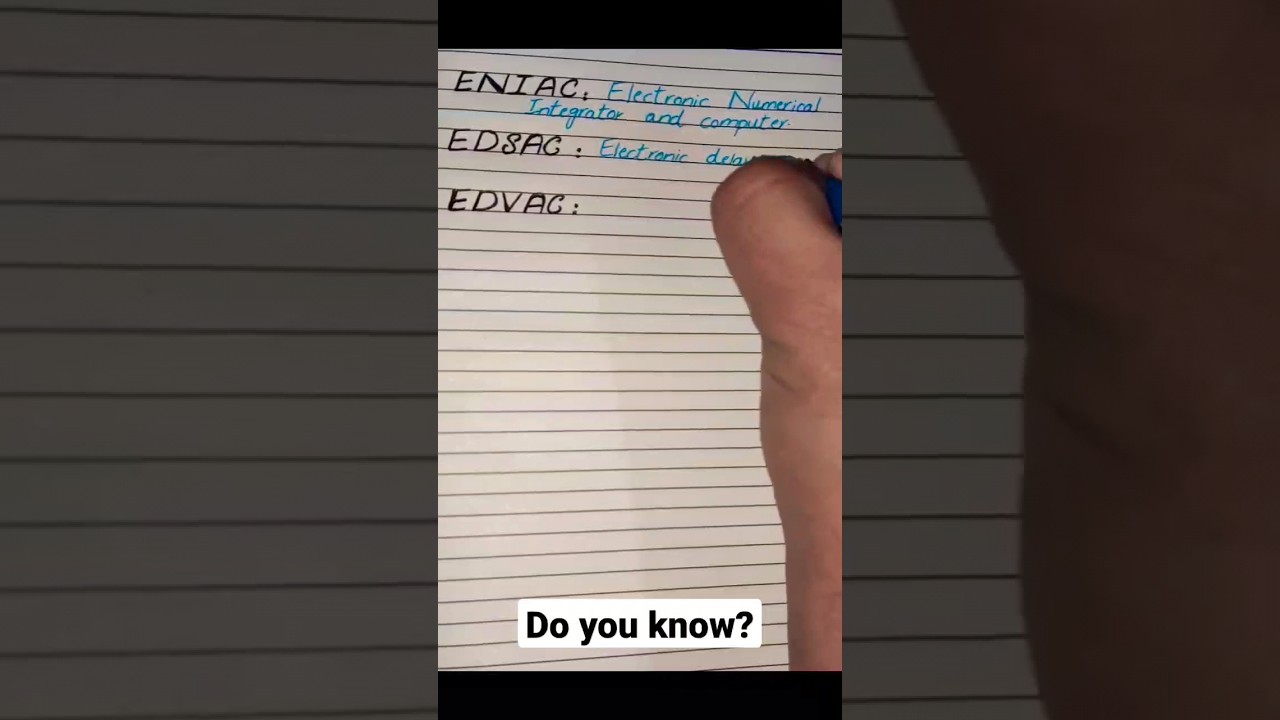 ENIAC: Electronic Numerical
Integrator and computer.
EDSAC: Electronic delay
EDVAC:
Do you know?